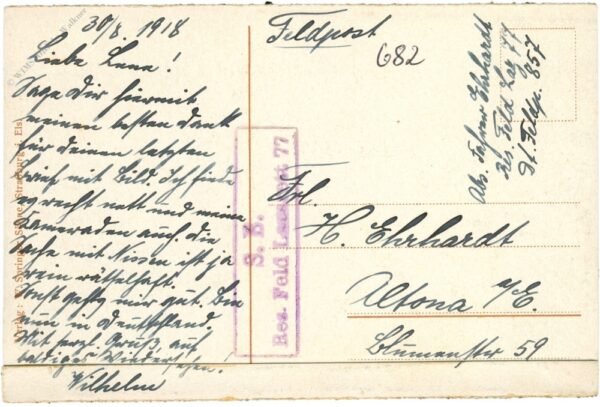 30/8. 1918
Liebe Lena!
Sage Dir hiermit
meinen besten Dank
für deinen letzten
Brief mit Bild. Ich finde
es recht nett und meine
Kameraden auch. die
Sache mit Nissen ist ja
rätselhaft.
Sonst geht's mir gut. Bin
nun in Deutschland.
Mit herzl. Gruß, auf
baldiges Wiedersehen!
Wilhelm
Feldpost
682
Abs. Fahrer Ehrhardt
Res. Feld Laz 77
Dt. Feldp. 857
S. B.
Res. Feld Lazarett 77
Frl.
H. Ehrhardt
Altona a/E.
Blumenstr 59